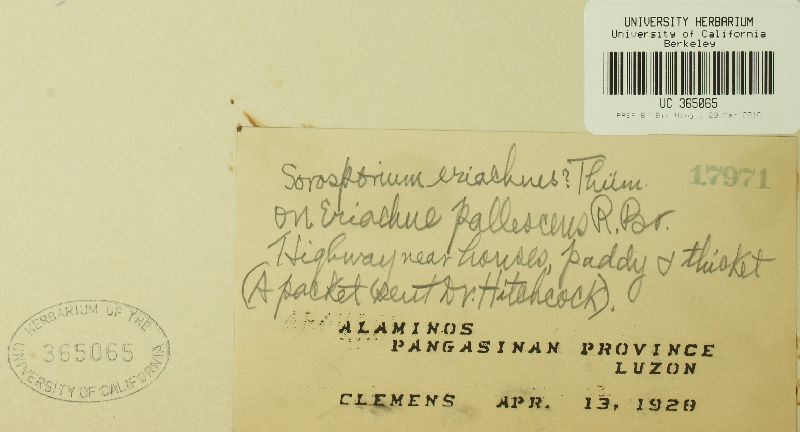 UNIVERSITY HERBARIUM
University of California
Berkeley
UC 365065
Sorosporium eriachnes? Thüm.
17971
on Eriachne pallescens R. Br.
Highway near houses, paddy & thicket
(A packet sent Dr. Hitchcock).
ALAMINOS
PANGASINAN PROVINCE
LUZON
CLEMENS APR. 13, 1928
HERBARIUM OF THE
365065
UNIVERSITY OF CALIFORNIA